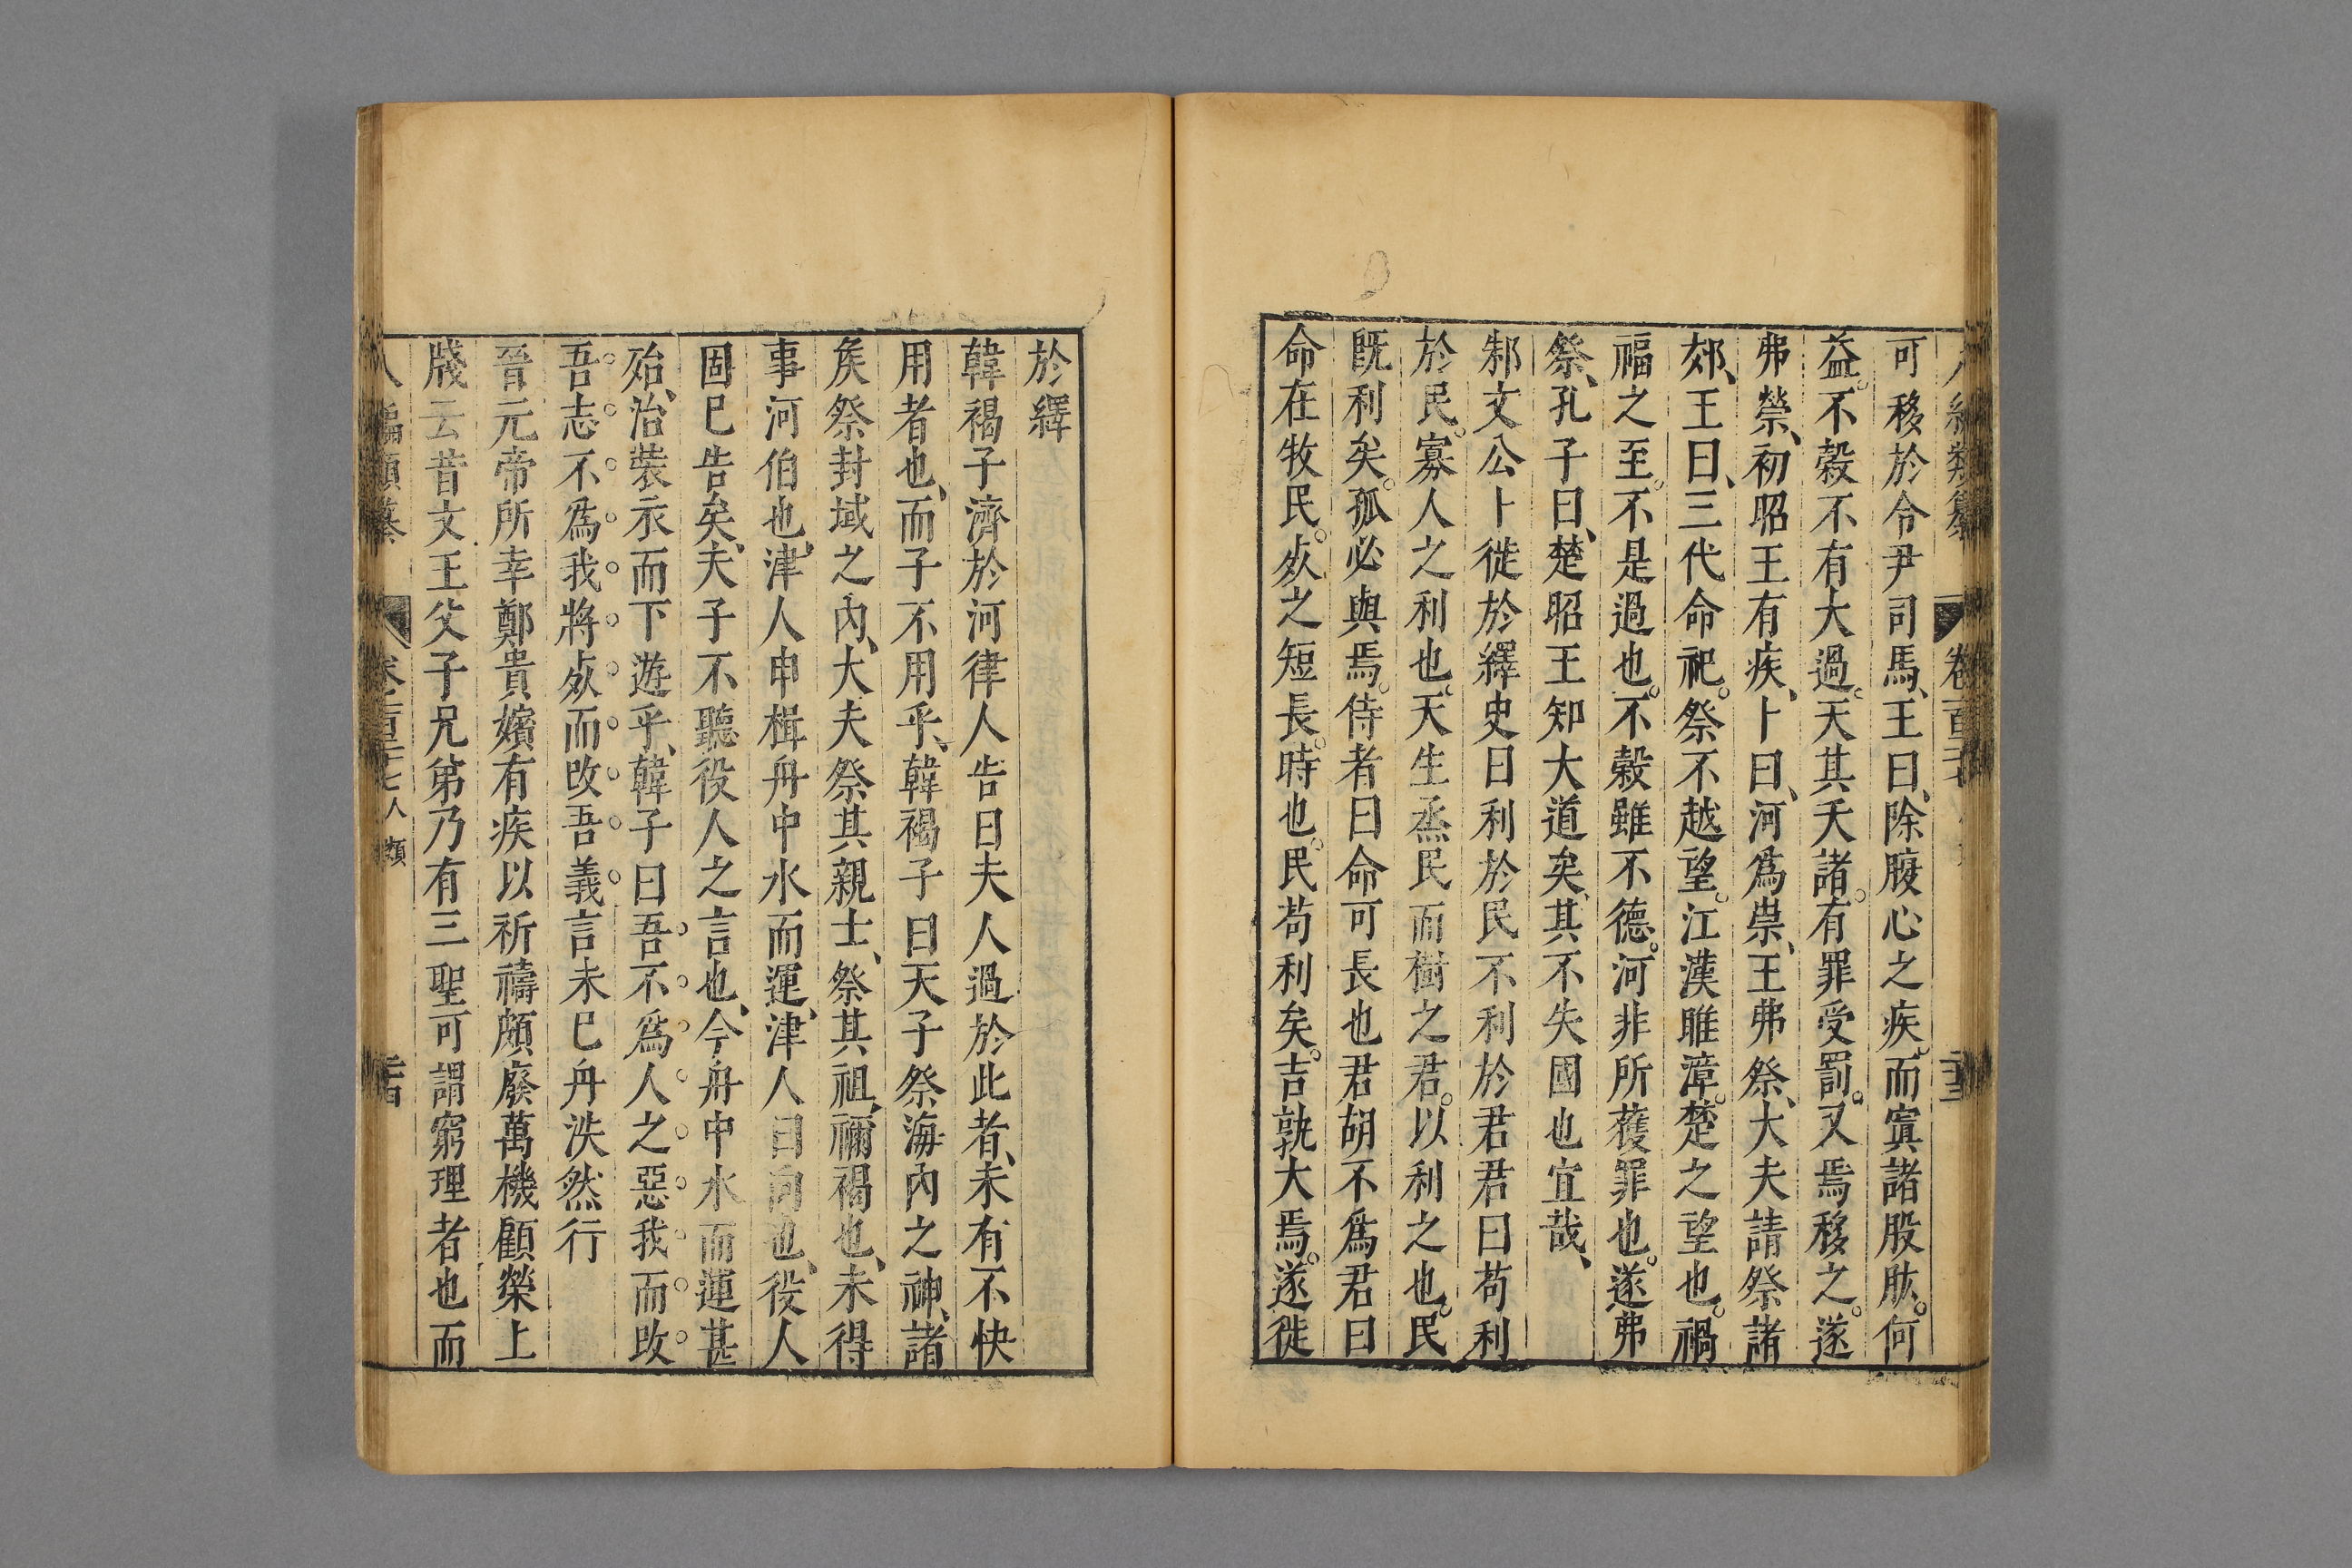 可移於令尹司馬、王曰、除腹心之疾、而寘諸股肱。何
益。不榖不有大過。天其夭諸。有罪受罰。又焉移之。遂
弗禜、初昭王有疾、卜曰、河爲祟、王弗祭、大夫請祭諸
郊、王曰、三代命祀。祭不越望。江漢雎漳。楚之望也。禍
福之至。不是過也。不榖雖不德。河非所獲罪也。遂弗
祭、孔子曰、楚昭王知大道矣、其不失國也宜哉、
邾文公卜徙於繹史曰利於民不利於君君曰苟利
於民。寡人之利也。天生烝民而樹之君。以利之也。民
既利矣。孤必與焉。侍者曰命可長也君胡不爲君曰
命在牧民。死之短長。時也。民苟利矣。吉孰大焉。遂徙
於繹
韓褐子濟於河律人告曰夫人過於此者、未有不快
用者也、而子不用乎、韓褐子曰天子祭海內之神、諸
矦祭封域之內、大夫祭其親士、祭其祖禰褐也、未得
事河伯也、津人申楫舟中水而運、津人曰向也、役人
固巳告矣、夫子不聽役人之言也、今舟中水而運甚
殆、治裝衣而下遊乎、韓子曰吾不爲人之惡我而改
吾志不爲我將死而改吾義言未巳舟泆然行
晉元帝所幸鄭貴嬪有疾以祈禱頗廢萬機顧榮上
牋云昔文王父子兄弟乃有三聖可謂窮理者也而
八編類纂 卷二百三十七人類 二十四